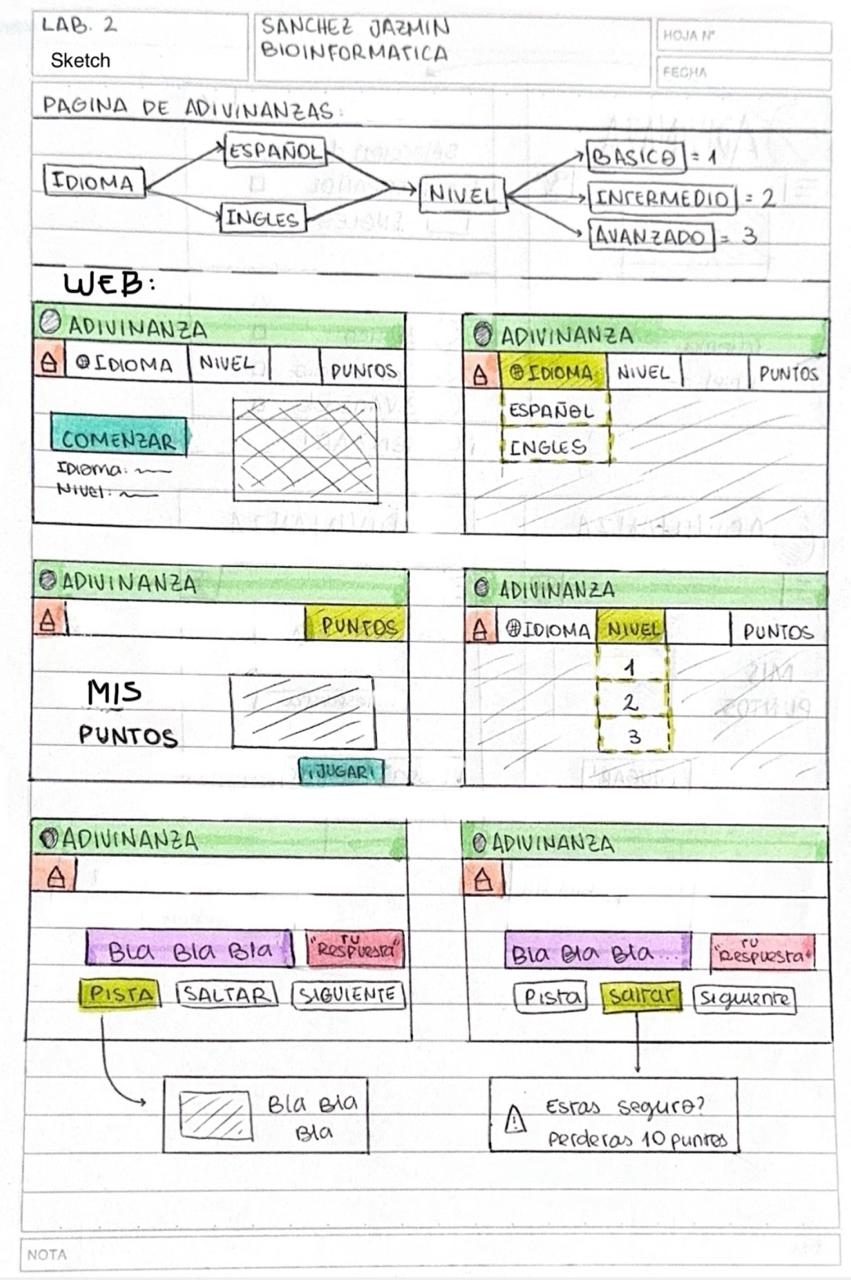 LAB. 2
Sketch
SANCHEZ JAZMIN
BIOINFORMATICA
HOJA N°
FECHA
PAGINA DE ADIVINANZAS:
IDIOMA
ESPAÑOL
INGLES
NIVEL
BASICO = 1
INTERMEDIO = 2
AVANZADO = 3
WEB:
ADIVINANZA
IDIOMA NIVEL PUNTOS
COMENZAR
Idioma:
Nivel:
ADIVINANZA
IDIOMA NIVEL PUNTOS
ESPAÑOL
INGLES
ADIVINANZA
PUNTOS
MIS
PUNTOS
¡JUGAR!
ADIVINANZA
IDIOMA NIVEL PUNTOS
1
2
3
ADIVINANZA
Bla Bla Bla
"TU
Respuesta"
PISTA SALTAR SIGUIENTE
Bla Bla
Bla
ADIVINANZA
Bla Bla Bla...
TU
"Respuesta"
Pista saltar siguiente
Estas segura?
perderas 10 puntos
NOTA